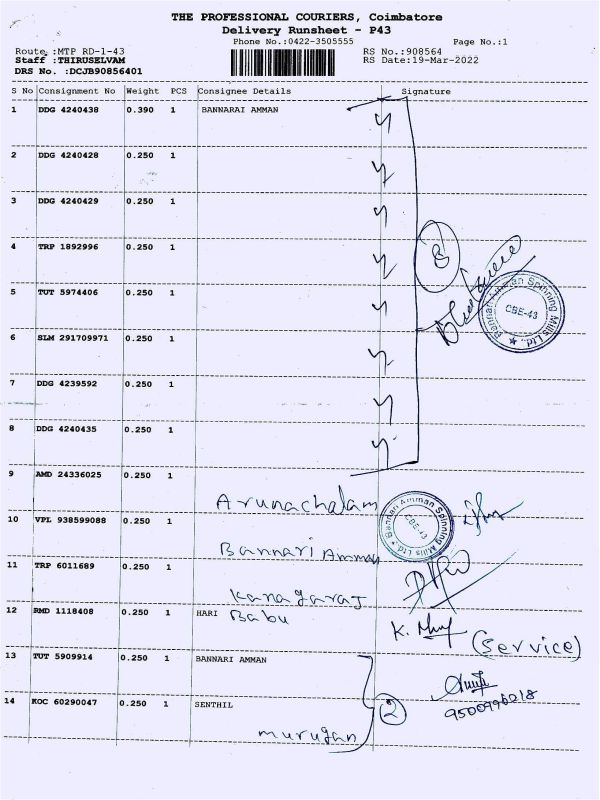 THE PROFESSIONAL COURIERS, Coimbatore
Delivery Runsheet - P43
Phone No.:0422-3505555
Page No.:1
Route :MTP RD-1-43
RS No.:908564
Staff :THIRUSELVAM
RS Date:19-Mar-2022
DRS No. :DCJB90856401
S No Consignment No Weight PCS Consignee Details Signature
1 DDG 4240438 0.390 1 BANNARAI AMMAN
2 DDG 4240428 0.250 1
3 DDG 4240429 0.250 1
4 TRP 1892996 0.250 1
8
5 TUT 5974406 0.250 1
Bannari Amman Spinning Mills Ltd.
CBE-43
6 SLM 291709971 0.250 1
7 DDG 4239592 0.250 1
8 DDG 4240435 0.250 1
9 AMD 24336025 0.250 1
Arunachalam
Bannari Amman Spinning Mills Ltd.
CBE-43
10 VPL 938599088 0.250 1
Bannari Amman
11 TRP 6011689 0.250 1
Kanagaraj
12 RMD 1118408 0.250 1 HARI Babu
(Service)
13 TUT 5909914 0.250 1 BANNARI AMMAN
14 KOC 60290047 0.250 1 SENTHIL
2
murugan